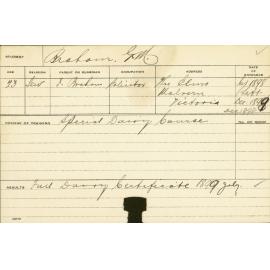 STUDENT Braham, G. M.
AGE RELIGION PARENT OR GUARDIAN OCCUPATION ADDRESS DATE OF ENTRANCE
23 Solicitor The Elms July 1898
Malvern Sept
Victoria Dec. 1899
COURSE OF TRAINING
Special Dairy Course
RESULTS Full Dairy Certificate 1899 July
DATE